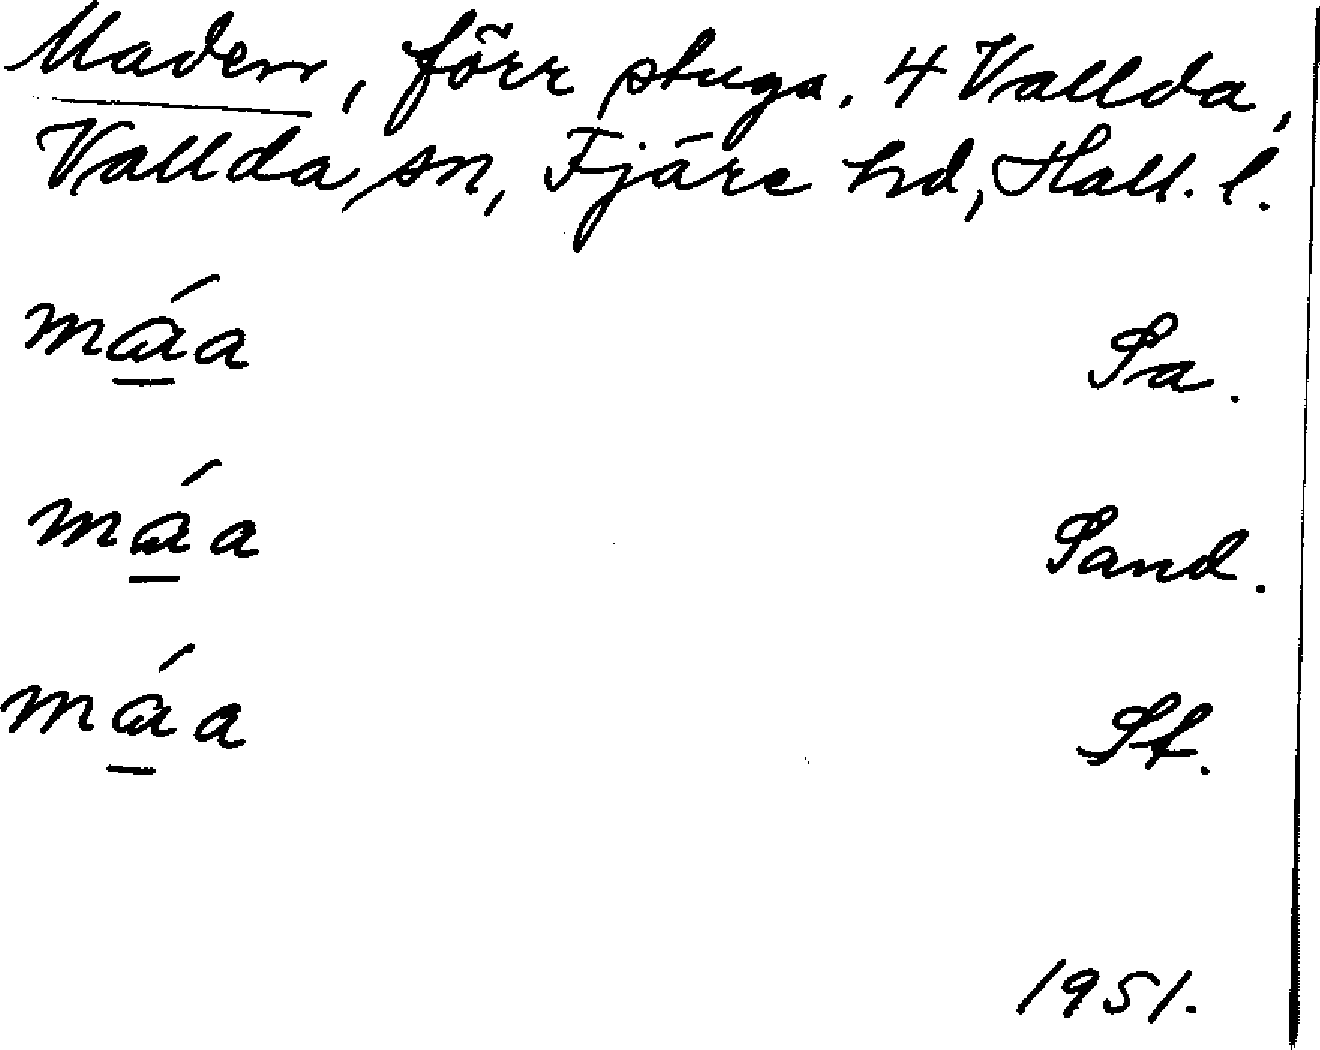 Maden, förr stuga. 4 Vallda,
Vallda sn, Fjäre hd, Hall. l.
máa Sa.
máa Sand.
máa St.
1951.